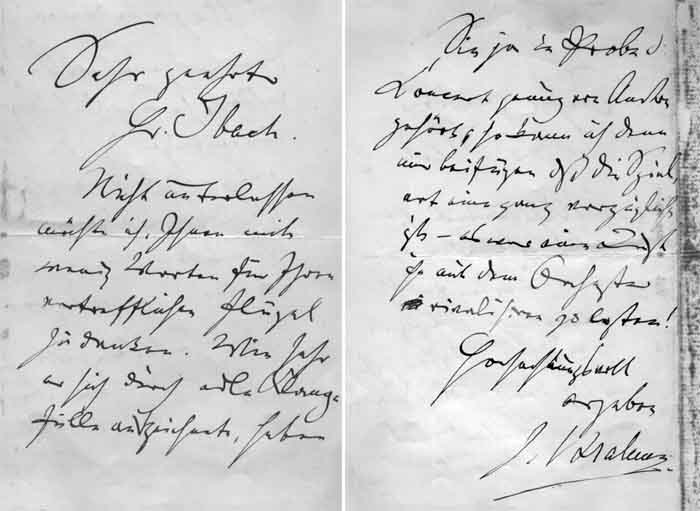 Sehr geehrter
Hr. Ibach.
Nicht unterlassen
möchte ich, Ihnen mit
wenig Worten für Ihren
vortrefflichen Flügel
zu danken. Wie sehr
er sich durch edle Klang-
fülle auszeichnete, haben
Sie ja in Probe u.
Concert genug von Andern
gehört, so kann ich denn
nur beifügen daß die Spiel-
art eine ganz vorzügliche
ist – es war eine Lust
so mit dem Orchester
rivalisiren zu können!
Hochachtungsvoll
ergeben
J. Brahms.